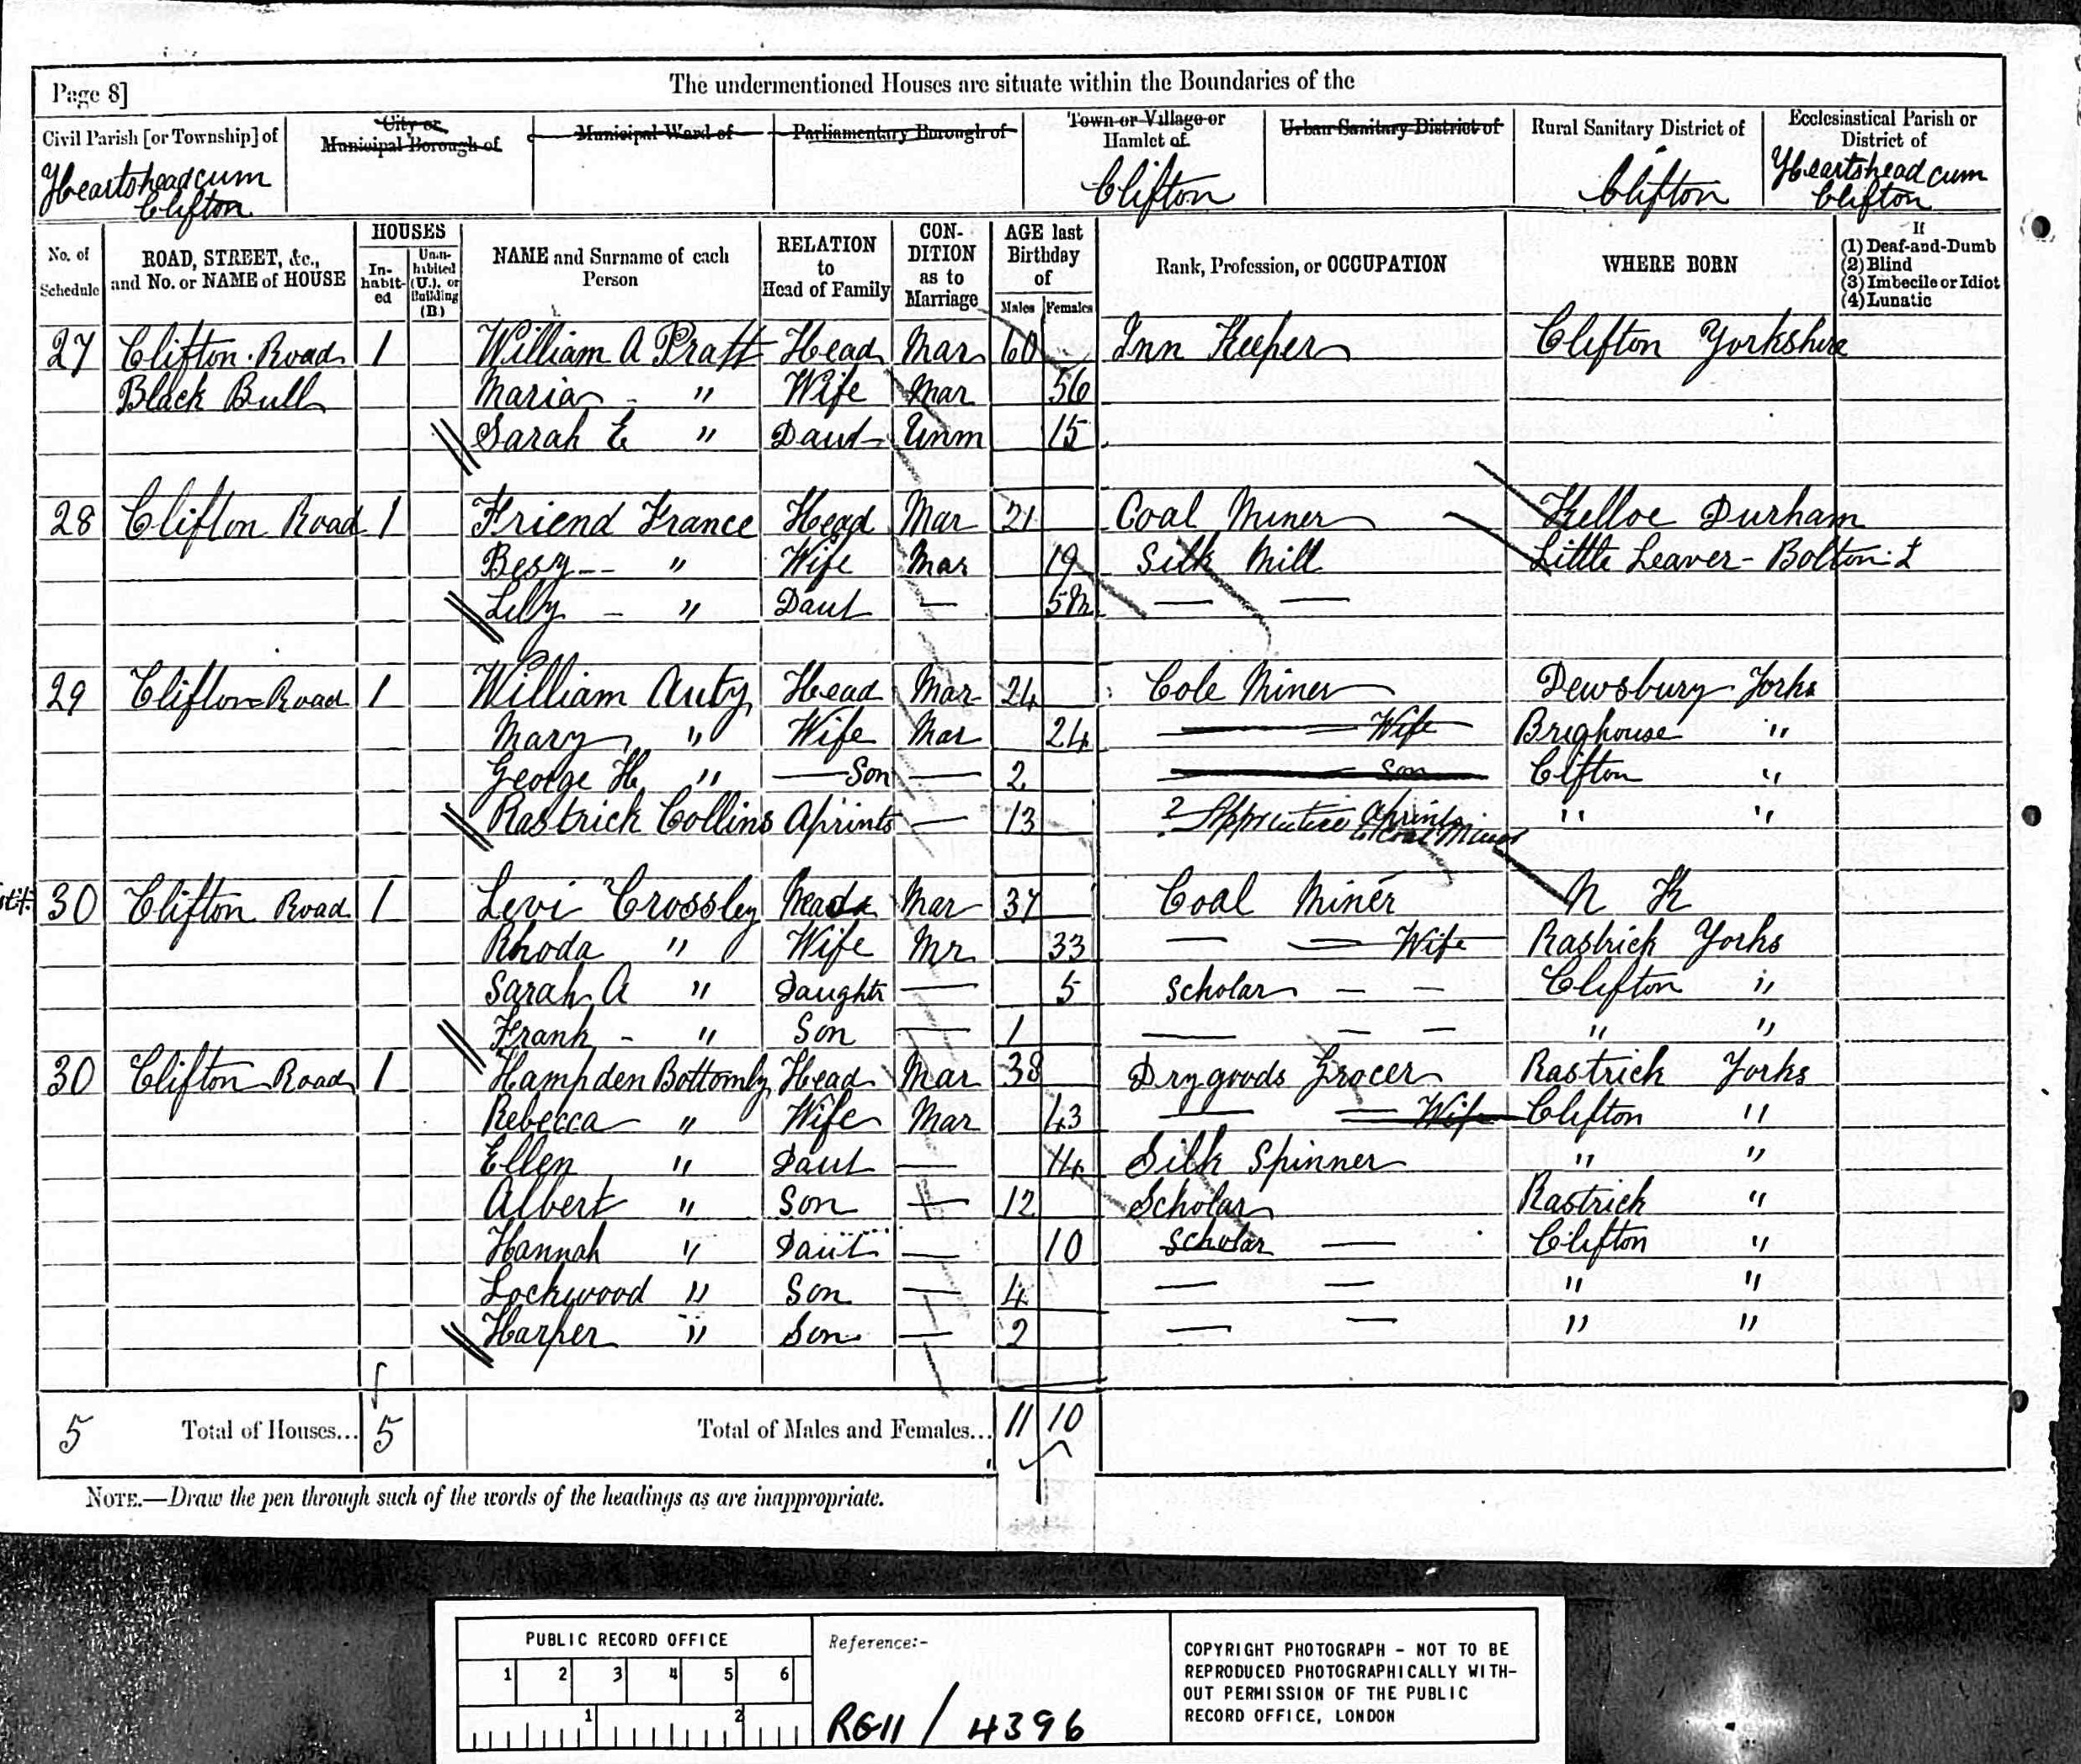 Page 8]
The undermentioned Houses are situate within the Boundaries of the
Civil Parish [or Township] of
City or Municipal Borough of
Municipal Ward of
Parliamentary Borough of
Town or Village or Hamlet of
Urban Sanitary District of
Rural Sanitary District of
Ecclesiastical Parish or District of
Heartshead cum Clifton
Clifton
Clifton
Heartshead cum Clifton
No. of Schedule
ROAD, STREET, &c., and No. or NAME of HOUSE
HOUSES
In-habit-ed
Unin-habited (U.), or Building (B.)
NAME and Surname of each Person
RELATION to Head of Family
CON-DITION as to Marriage
AGE last Birthday of
Males Females
Rank, Profession, or OCCUPATION
WHERE BORN
If
(1) Deaf-and-Dumb
(2) Blind
(3) Imbecile or Idiot
(4) Lunatic
27 Clifton Road 1 William A Pratt Head Mar 60 Inn Keeper Clifton Yorkshire
Black Bull Maria " Wife Mar 56
Sarah E " Daut Unm 15
28 Clifton Road 1 Friend France Head Mar 21 Coal Miner Kelloe Durham
Besy " Wife Mar 19 Silk Mill Little Leaver - Bolton L
Lilly - " Daut — 5m — —
29 Clifton Road 1 William Auty Head Mar 24 Cole Miner Dewsbury Yorks
Mary " Wife Mar 24 — Wife Brighouse "
George H " — Son — 2 — Son Clifton "
Rastrick Collins Aprints — 13 ? Apprentice Aprints to Coal Miner " "
30 Clifton Road 1 Levi Crossley Head Mar 37 Coal Miner N K
Rhoda " Wife Mr 33 — — Wife Rastrick Yorks
Sarah A " Daughtr — 5 Scholar — — Clifton "
Frank - " Son — 1 — — — " "
30 Clifton Road 1 Hampden Bottomly Head Mar 38 Dry goods Grocer Rastrick Yorks
Rebecca " Wife Mar 43 — — Wife Clifton "
Ellen " Daut — 14 Silk Spinner " "
Albert " Son — 12 Scholar Rastrick "
Hannah " Daut — 10 Scholar — Clifton "
Lockwood " Son — 4 — — " "
Harper " Son — 2 — — " "
5 Total of Houses... 5 Total of Males and Females... 11 10
NOTE.—Draw the pen through such of the words of the headings as are inappropriate.
PUBLIC RECORD OFFICE
1 2 3 4 5 6
1 2
Reference:-
RG11 / 4396
COPYRIGHT PHOTOGRAPH - NOT TO BE
REPRODUCED PHOTOGRAPHICALLY WITH-
OUT PERMISSION OF THE PUBLIC
RECORD OFFICE, LONDON